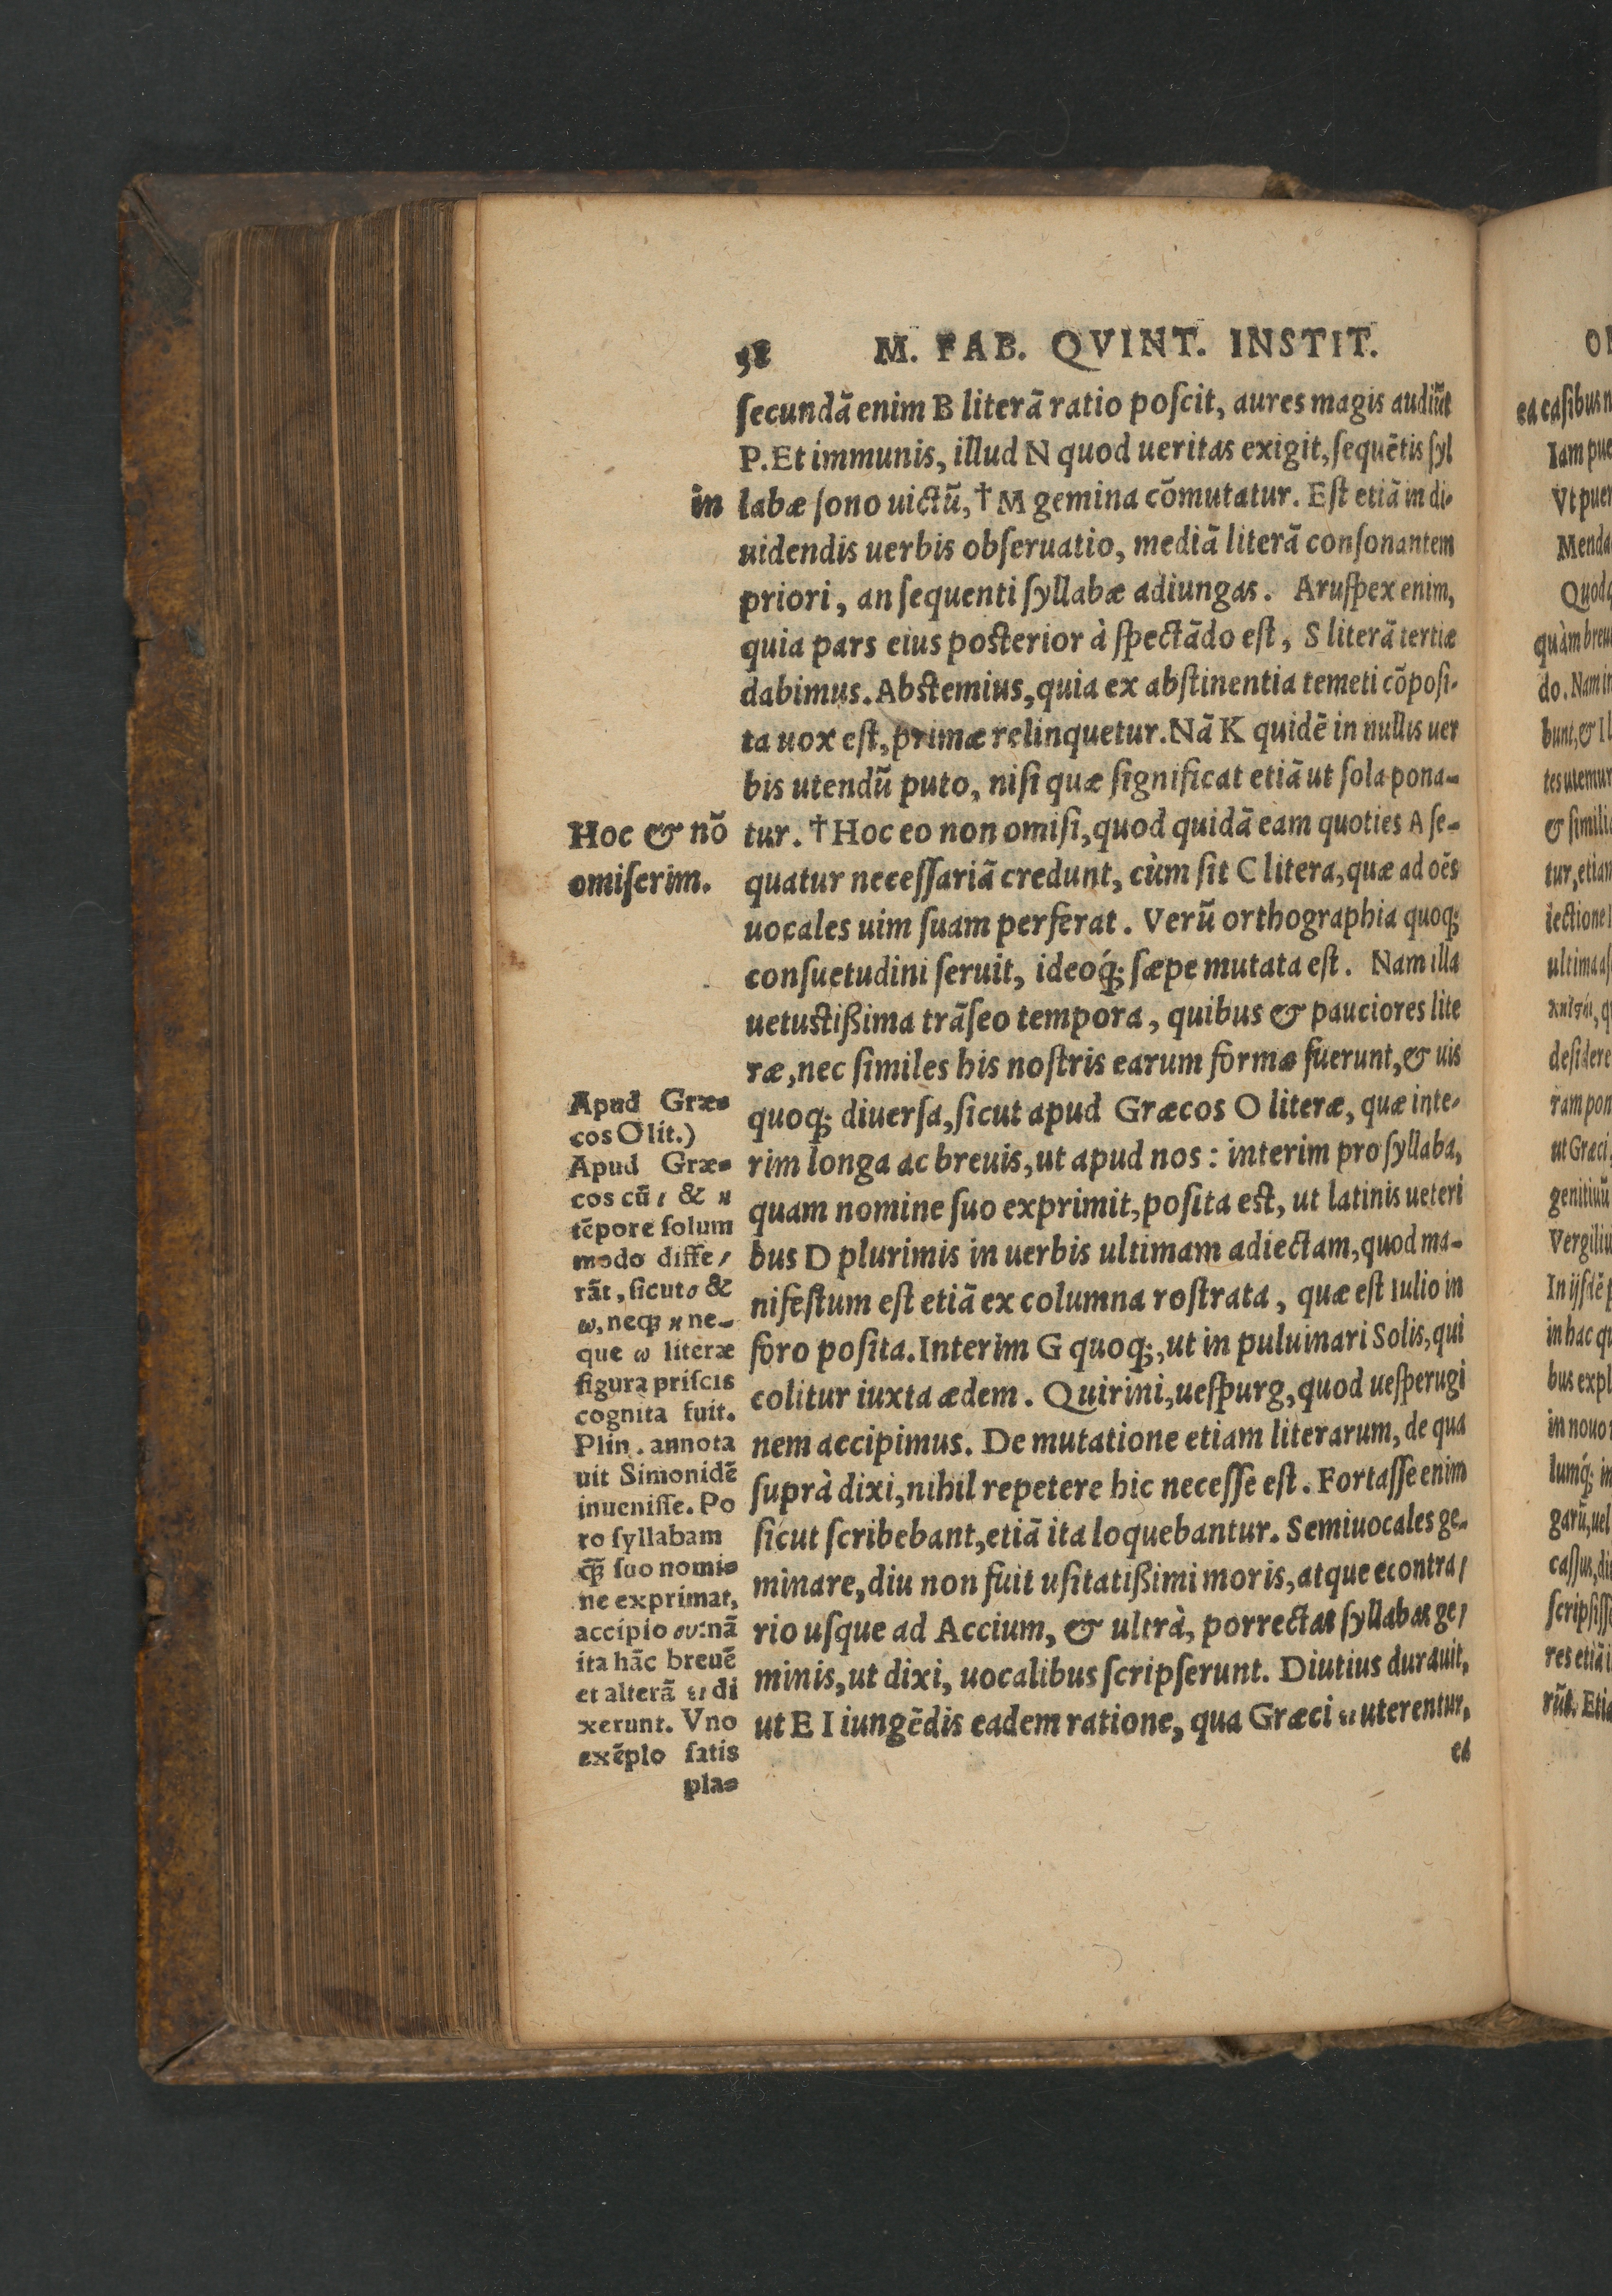 58 M. FAB. QVINT. INSTIT.
ſecundā enim B literā ratio poſcit, aures magis audiūt
P. Et immunis, illud N quod ueritas exigit, ſequētis ſyl
in
labæ ſono uictū, † M gemina cōmutatur. Eſt etiā in di-
uidendis uerbis obſeruatio, mediā literā conſonantem
priori, an ſequenti ſyllabæ adiungas. Aruſpex enim,
quia pars eius poſterior à ſpectādo eſt, S literā tertiæ
dabimus. Abſtemius, quia ex abſtinentia temeti cōpoſi-
ta uox eſt, primæ relinquetur. Nā K quidē in nullis uer
bis utendū puto, niſi quæ ſignificat etiā ut ſola pona-
tur. † Hoc eo non omiſi, quod quidā eam quoties A ſe-
quatur neceſſariā credunt, cùm ſit C litera, quæ ad oēs
uocales uim ſuam perferat. Verū orthographia quoq;
conſuetudini ſeruit, ideoq́; ſæpe mutata eſt. Nam illa
uetuſtißima trāſeo tempora, quibus & pauciores lite
ræ, nec ſimiles his noſtris earum formæ fuerunt, & uis
quoq; diuerſa, ſicut apud Græcos O literæ, quæ inte-
rim longa ac breuis, ut apud nos: interim pro ſyllaba,
quam nomine ſuo exprimit, poſita eſt, ut latinis ueteri
bus D plurimis in uerbis ultimam adiectam, quod ma-
nifeſtum eſt etiā ex columna roſtrata, quæ eſt Iulio in
foro poſita. Interim G quoq;, ut in puluinari Solis, qui
colitur iuxta ædem. Quirini, ueſpurg, quod ueſperugi
nem accipimus. De mutatione etiam literarum, de qua
ſuprà dixi, nihil repetere hic neceſſe eſt. Fortaſſe enim
ſicut ſcribebant, etiā ita loquebantur. Semiuocales ge-
minare, diu non fuit uſitatißimi moris, atque econtra/
rio uſque ad Accium, & ultrà, porrectas ſyllabas ge/
minis, ut dixi, uocalibus ſcripſerunt. Diutius durauit,
ut E I iungēdis eadem ratione, qua Græci ει uterentur,
ea
Hoc & nō
omiſerim.
Apud Græ-
cos O lit.)
Apud Græ-
cos cū ε & η
tēpore ſolum
modo diffe/
rāt, ſicut ο &
ω, neq; η ne-
que ω literæ
figura priſcis
cognita fuit.
Plin. annota
uit Simonidē
inueniſſe. Po
ro ſyllabam
q̄; ſuo nomi-
ne exprimat,
accipio ου: nā
ita hāc breuē
et alterā ει di
xerunt. Vno
exēplo ſatis
pla-
ea caſibus n
Iam pue
Vt puer
Menda
quàm breu
do. Nam in
bunt, & Il
tes utemur
& ſimili
tur, etian
lectione
ultima
deſidere
ram pon
ut Græci
genitiuū
Vergiliu
In ijſdē p
in hac qu
bus expl
in nouo
lumq́; in
garū, uel
caſſus, di
ſcripſiſſ
res etiā i
rūt. Etia